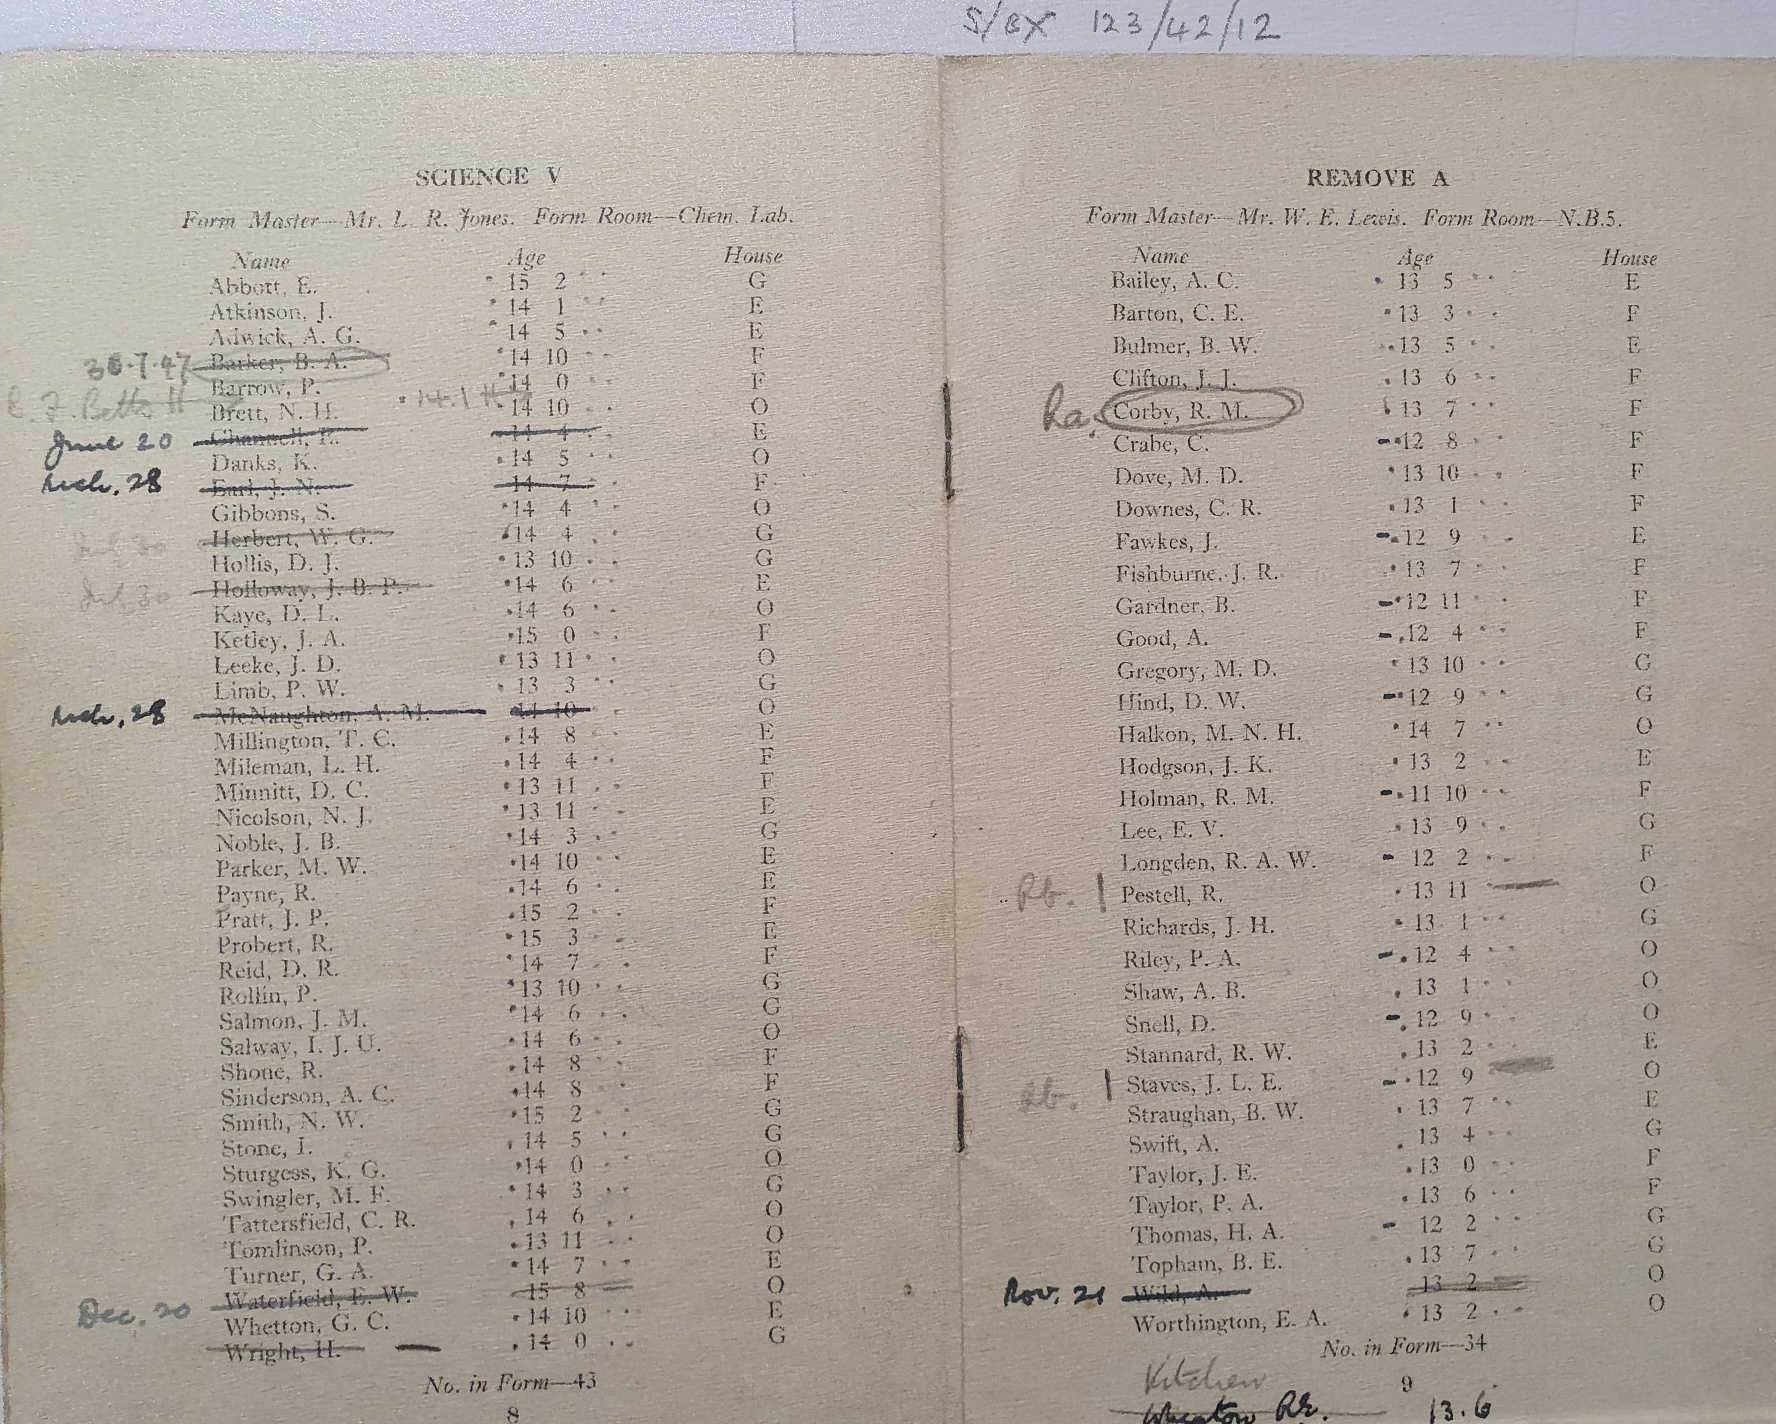 S/BX 123/42/12
SCIENCE V
Form Master—Mr. L. R. Jones. Form Room—Chem. Lab.
Name Age House
Abbott, E. 15 2 G
Atkinson, J. 14 1 E
Adwick, A. G. 14 5 E
30.7.47 Barker, B. A. 14 10 F
Barrow, P. 14 0 F
Betts H 14.1 H Brett, N. H. 14 10 O
June 20 Channell, E. 14 4 E
Danks, K. 14 5 O
Mch. 28 Earl, J. N. 14 7 F
Gibbons, S. 14 4 O
July 30 Herbert, W. G. 14 4 G
Hollis, D. J. 13 10 G
July 30 Holloway, J. B. P. 14 6 E
Kaye, D. L. 14 6 O
Ketley, J. A. 15 0 F
Leeke, J. D. 13 11 O
Limb, P. W. 13 3 G
Mch. 28 McNaughton, A. M. 14 10 O
Millington, T. C. 14 8 E
Mileman, L. H. 14 4 F
Minnitt, D. C. 13 11 F
Nicolson, N. J. 13 11 E
Noble, J. B. 14 3 G
Parker, M. W. 14 10 E
Payne, R. 14 6 E
Pratt, J. P. 15 2 F
Probert, R. 15 3 E
Reid, D. R. 14 7 F
Rollin, P. 13 10 G
Salmon, J. M. 14 6 G
Salway, I. J. U. 14 6 O
Shone, R. 14 8 F
Sinderson, A. C. 14 8 F
Smith, N. W. 15 2 G
Stone, I. 14 5 G
Sturgess, K. G. 14 0 O
Swingler, M. F. 14 3 G
Tattersfield, C. R. 14 6 O
Tomlinson, P. 13 11 O
Turner, G. A. 14 7 E
Dec. 20 Waterfield, E. W. 15 8 O
Whetton, G. C. 14 10 E
Wright, H. 14 0 G
No. in Form—43
8
REMOVE A
Form Master—Mr. W. E. Lewis. Form Room—N.B.5.
Name Age House
Bailey, A. C. 13 5 E
Barton, C. E. 13 3 F
Bulmer, B. W. 13 5 E
Clifton, J. J. 13 6 F
Ra. Corby, R. M. 13 7 F
Crabe, C. 12 8 F
Dove, M. D. 13 10 F
Downes, C. R. 13 1 F
Fawkes, J. 12 9 E
Fishburne, J. R. 13 7 F
Gardner, B. 12 11 F
Good, A. 12 4 F
Gregory, M. D. 13 10 G
Hind, D. W. 12 9 G
Halkon, M. N. H. 14 7 O
Hodgson, J. K. 13 2 E
Holman, R. M. 11 10 F
Lee, E. V. 13 9 G
Longden, R. A. W. 12 2 F
Rb. Pestell, R. 13 11 O
Richards, J. H. 13 1 G
Riley, P. A. 12 4 O
Shaw, A. B. 13 1 O
Snell, D. 12 9 O
Stannard, R. W. 13 2 E
Rb. Staves, J. L. E. 12 9 O
Straughan, B. W. 13 7 E
Swift, A. 13 4 G
Taylor, J. E. 13 0 F
Taylor, P. A. 13 6 F
Thomas, H. A. 12 2 G
Topham, B. E. 13 7 G
Nov. 21 Wild, A. 13 2 O
Worthington, E. A. 13 2 O
No. in Form—34
Kitchen 9
Wheaton 13.6